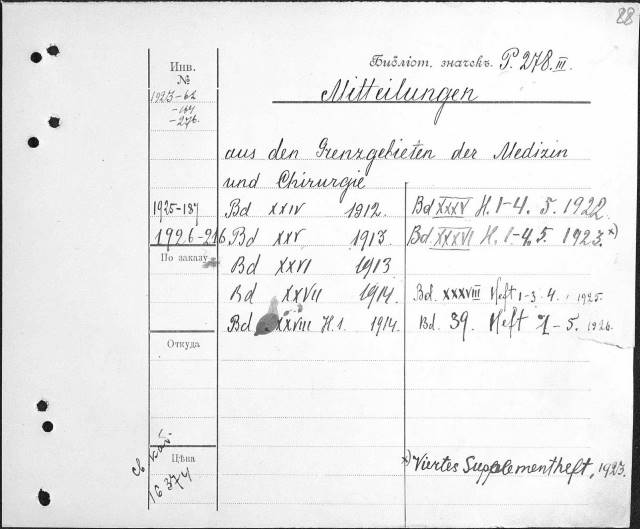 88
Инв.
№
Библіот. значекъ P. 278.III.
1923-62
-187
-276.
Mitteilungen
aus den Grenzgebieten der Medizin
und Chirurgie
1925-187 Bd XXIV 1912. Bd XXXV H. 1-4. 5. 1922.
1926-216 Bd XXV 1913. Bd XXXVI H. 1-4, 5. 1923. x)
По заказу Bd XXVI 1913
Bd XXVII 1914. Bd. XXXVIII Heft 1-3. 4. 1925.
Bd XXVIII H. 1. 1914. Bd. 39. Heft 1-5. 1926.
Откуда
Цѣна
16374
x) Viertes Supplementheft, 1923.